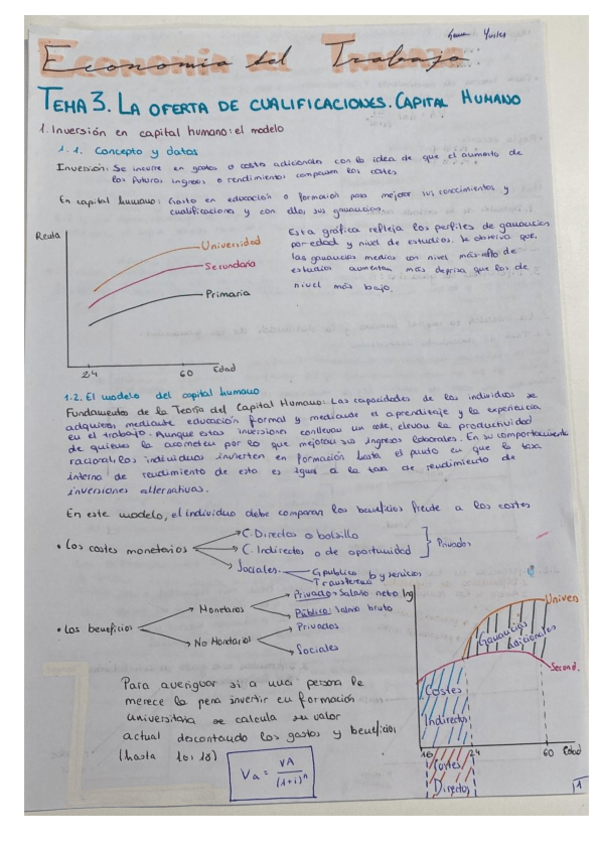 Economía del Trabajo
TEMA 3. LA OFERTA DE CUALIFICACIONES. CAPITAL HUMANO
1. Inversión en capital humano: el modelo
1.1. Concepto y datos
Inversión: Se incurre en gastos o costes adicionales con la idea de que el aumento de
los futuros ingresos o rendimientos compensen los costes
En capital humano: Gasto en educación o formación para mejorar sus conocimientos y
cualificaciones y con ello, sus ganancias.
Renta
Universidad
Secundaria
Primaria
24
60
Edad
Esta gráfica refleja los perfiles de ganancias
por edad y nivel de estudios. Se observa que
las ganancias medias con nivel más alto de
estudios aumentan más deprisa que los de
nivel más bajo.
1.2. El modelo del capital humano
Fundamentos de la Teoría del Capital Humano: Las capacidades de los individuos se
adquieren mediante educación formal y mediante el aprendizaje y la experiencia
en el trabajo. Aunque estas inversiones conllevan un coste, elevan la productividad
de quienes la acometen por lo que mejoran sus ingresos laborales. En su comportamiento
racional, los individuos invierten en formación hasta el punto en que la tasa
interna de rendimiento de esta es igual a la tasa de rendimiento de
inversiones alternativas.
En este modelo, el individuo debe comparar los beneficios frente a los costes
• Los costes monetarios
C. Directos o bolsillo
C. Indirectos o de oportunidad
Privados
Sociales
G público b y servicios
Transferencias
• Los beneficios
Monetarios
Privados: Salario neto
Público: Salario bruto
No Monetarios
Privados
Sociales
Ing
Univers
Ganancias
Adicionales
Second.
Costes
Indirectos
16
24
60
Edad
Costes
Directos
Para averiguar si a una persona le
merece la pena invertir en formación
universitaria se calcula su valor
actual descontando los gastos y beneficios
(hasta los 18)
Va = VA / (1+i)ⁿ
1